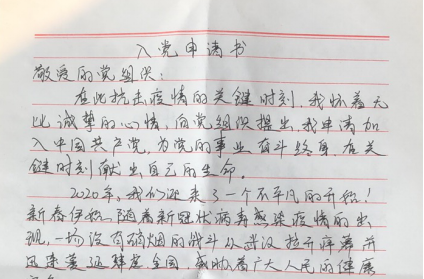 入党申请书
敬爱的党组织：
在此抗击疫情的关键时刻，我怀着无
比诚挚的心情，向党组织提出，我申请加
入中国共产党，为党的事业奋斗终身，在关
键时刻献出自己的生命。
2020年，我们迎来了一个不平凡的开始！
新春伊始，随着新冠状病毒感染疫情的出
现，一场没有硝烟的战斗从武汉拉开序幕并
迅速蔓延肆虐全国，威胁着广大人民的健康